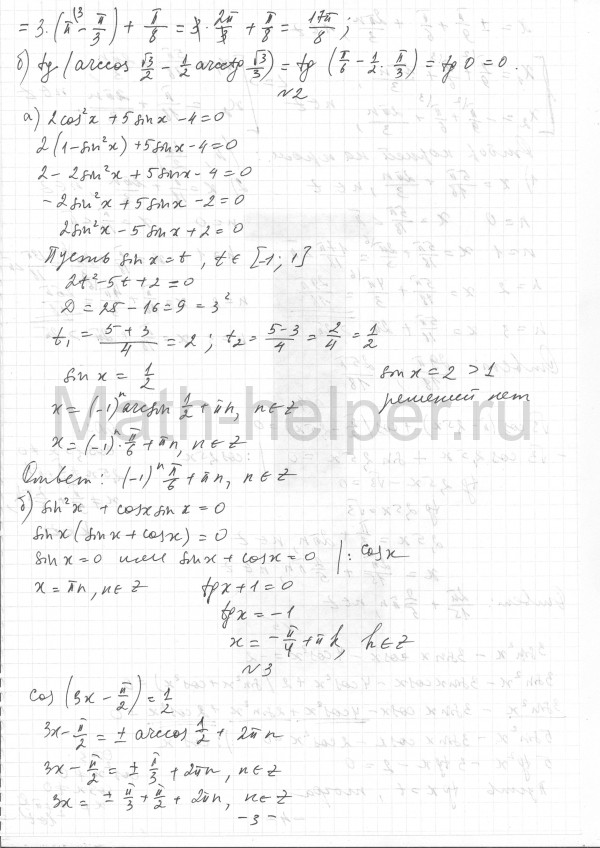 = 3·(π^(3 - π/3) + π/8 = 3·2π/3 + π/8 = 17π/8 ;
б) tg (arccos √3/2 - 1/2 arcctg √3/3) = tg (π/6 - 1/2 · π/3) = tg 0 = 0.
№2
а) 2cos²x + 5sinx - 4 = 0
2(1-sin²x) + 5sinx - 4 = 0
2 - 2sin²x + 5sinx - 4 = 0
-2sin²x + 5sinx - 2 = 0
2sin²x - 5sinx + 2 = 0
Пусть sinx = t, t ∈ [-1; 1]
2t² - 5t + 2 = 0
D = 25 - 16 = 9 = 3²
t₁ = (5+3)/4 = 2 ; t₂ = (5-3)/4 = 2/4 = 1/2
sin x = 1/2 sinx = 2 > 1
x = (-1)ⁿ arcsin 1/2 + πn, n ∈ Z решений нет
Math-helper.ru
x = (-1)ⁿ · π/6 + πn, n ∈ Z
Ответ: (-1)ⁿ π/6 + πn, n ∈ Z
б) sin²x + cosx sinx = 0
sinx (sinx + cosx) = 0
sinx = 0 или sinx + cosx = 0 |: cosx
x = πn, n ∈ Z tgx + 1 = 0
tgx = -1
x = -π/4 + πk, k ∈ Z
№3
cos (3x - π/2) = 1/2
3x - π/2 = ± arccos 1/2 + 2πn
3x - π/2 = ± π/3 + 2πn, n ∈ Z
3x = ± π/3 + π/2 + 2πn, n ∈ Z
- 3 -